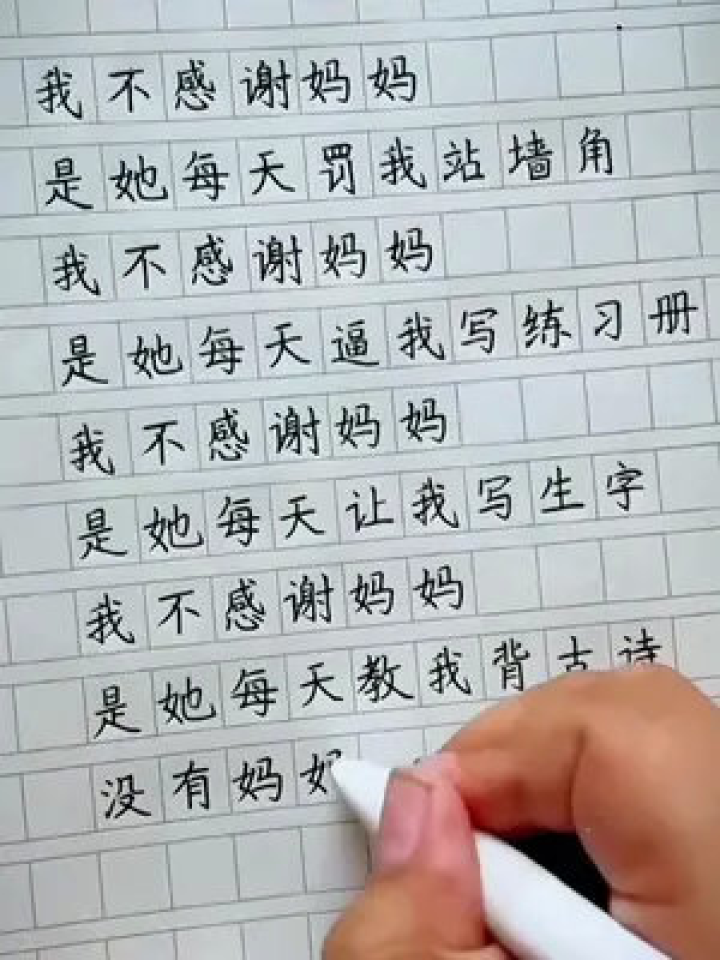 我不感谢妈妈
是她每天罚我站墙角
我不感谢妈妈
是她每天逼我写练习册
我不感谢妈妈
是她每天让我写生字
我不感谢妈妈
是她每天教我背古诗
没有妈妈